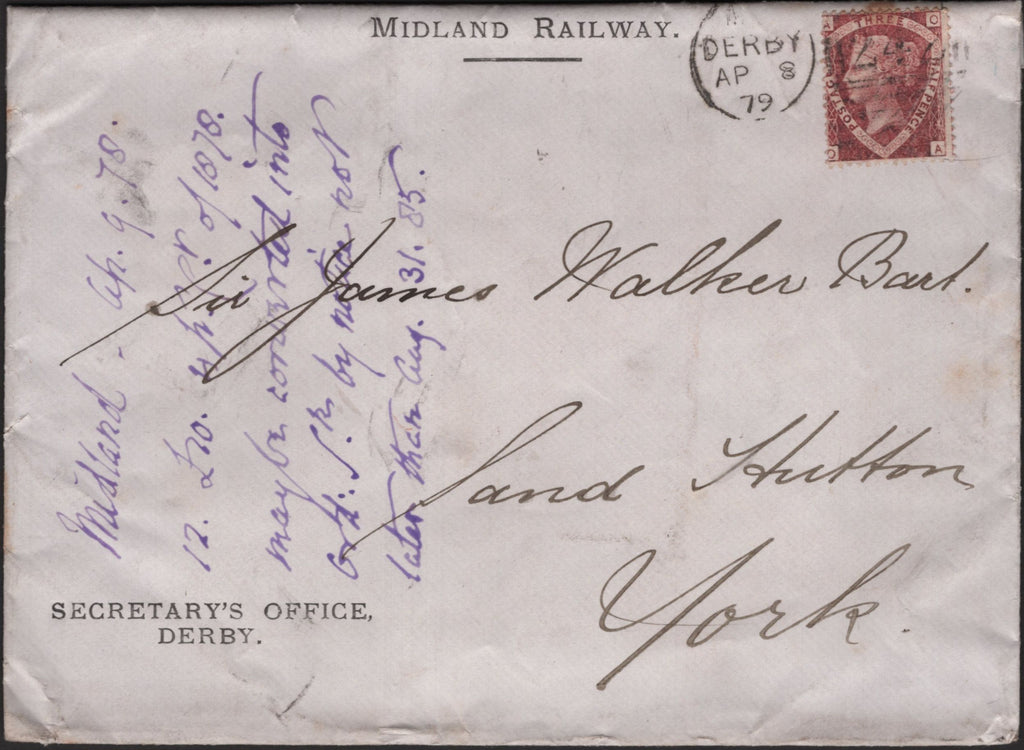 MIDLAND RAILWAY.
DERBY
AP 8
79
THREE
HALFPENCE
POSTAGE
O
A
Sir James Walker Bart.
Sand Hutton
York.
SECRETARY'S OFFICE,
DERBY.
Midland - Ap. 9. 78.
12. £10. of 1878.
may be converted into
ord: by notice not
later than Aug. 31. 85.